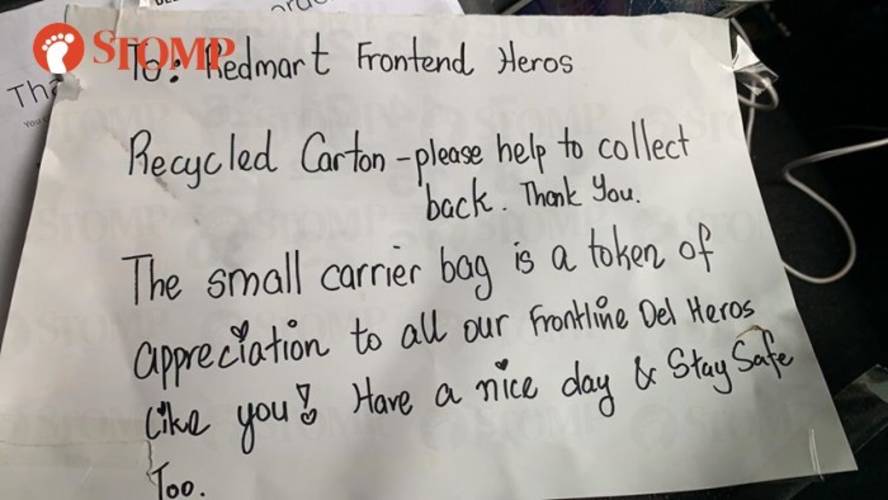 STOMP
To: Redmart Frontend Heros
Recycled Carton - please help to collect
back. Thank You.
The small carrier bag is a token of
appreciation to all our Frontline Del Heros
like you! Have a nice day & Stay Safe
Too.